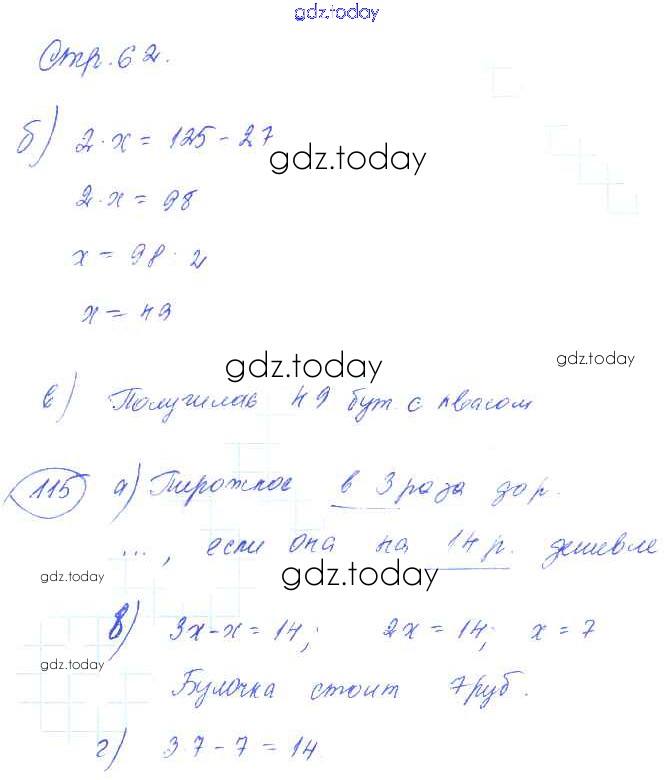 gdz.today
Стр. 62.
б) 2·x = 125 - 27
gdz.today
2·x = 98
x = 98 : 2
x = 49
gdz.today
gdz.today
в) Получилось 49 бут. с квасом
115 а) Пирожное в 3 раза дор.
..., если она на 14 р. дешевле
gdz.today
gdz.today
в) 3x-x = 14; 2x = 14; x = 7
gdz.today
Булочка стоит 7 руб.
г) 3·7 - 7 = 14
gdz.today